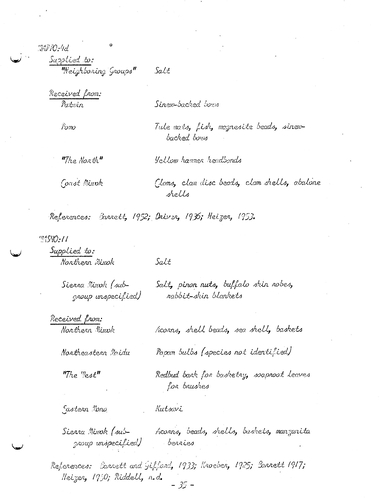 Supplied to:
"Neighboring Groups" Salt
Received from:
Patwin Sinew-backed bows
Pomo Tule mats, fish, magnesite beads, sinew-
backed bows
"The North" Yellow hammer headbands
Coast Miwok Clams, clam disc beads, clam shells, abalone
shells
References: Barrett, 1952; Driver, 1936; Heizer, 1953.
Supplied to:
Northern Miwok Salt
Sierra Miwok (sub- Salt, pinon nuts, buffalo skin robes,
group unspecified) rabbit-skin blankets
Received from:
Northern Miwok Acorns, shell beads, sea shell, baskets
Northeastern Maidu Papam bulbs (species not identified)
"The West" Redbud bark for basketry, soaproot leaves
for brushes
Eastern Mono Kutsavi
Sierra Miwok (sub- Acorns, beads, shells, baskets, manzanita
group unspecified) berries
References: Barrett and Gifford, 1933; Kroeber, 1925; Barrett 1917;
Heizer, 1950; Riddell, n.d.
- 35 -